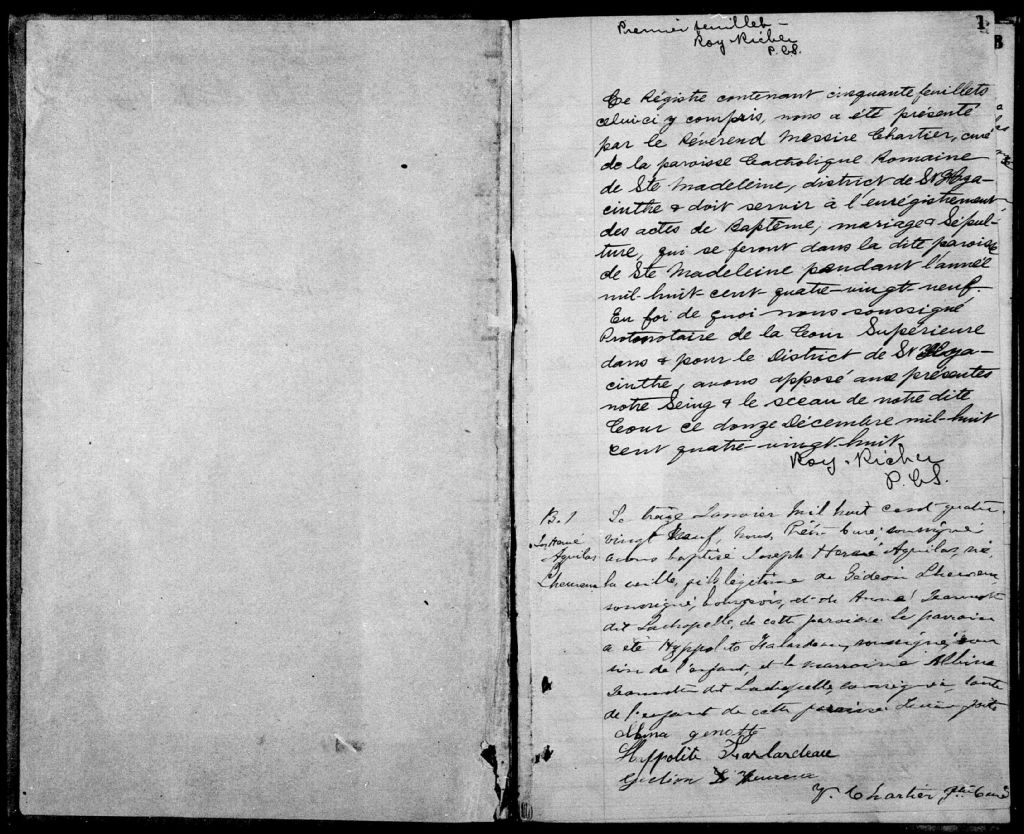 1
B
Premier feuillet -
Roy Richer
P.C.S.
Ce Régistre contenant cinquante feuillets
celui ci y compris, nous a été présenté
par le Révérend Messire Chartier, curé
de la paroisse Catholique Romaine
de Ste Madeleine, district de St Hya-
cinthe & doit servir à l'enrégistrement
des actes de Baptême, mariage & Sépul-
ture, qui se feront dans la dite paroisse
de Ste Madeleine pendant l'année
mil-huit-cent-quatre-vingt-neuf.
En foi de quoi nous soussigné
Protonotaire de la Cour Supérieure
dans & pour le District de St Hya-
cinthe, avons apposé aux présentes
notre Seing & le sceau de notre dite
Cour ce douze Décembre mil-huit
cent quatre-vingt-huit
Roy-Richer
P.C.S.
B. 1
Jos, Hervé
Aguilas
Lheureux
Le treize Janvier Mil huit cent quatre
vingt Neuf, Nous, Prêtre Curé, soussigné
avons baptisé Joseph Hervé Aguilas, né
la veille, fils légitime de Gédéoin Lheureux
soussigné, bourgeois, et de Jeannotte
dit Lachapelle, de cette paroisse. Le parrain
a été Hyppolite soussigné, cou
sin de l'enfant, et la marraine Albina
Jeannotte dit Lachapelle, soussignée, tante
de l'enfant de cette paroisse. Lecture faite
Albina
Hyppolite
Gédéon L Heureux
V. Chartier Ptre Curé